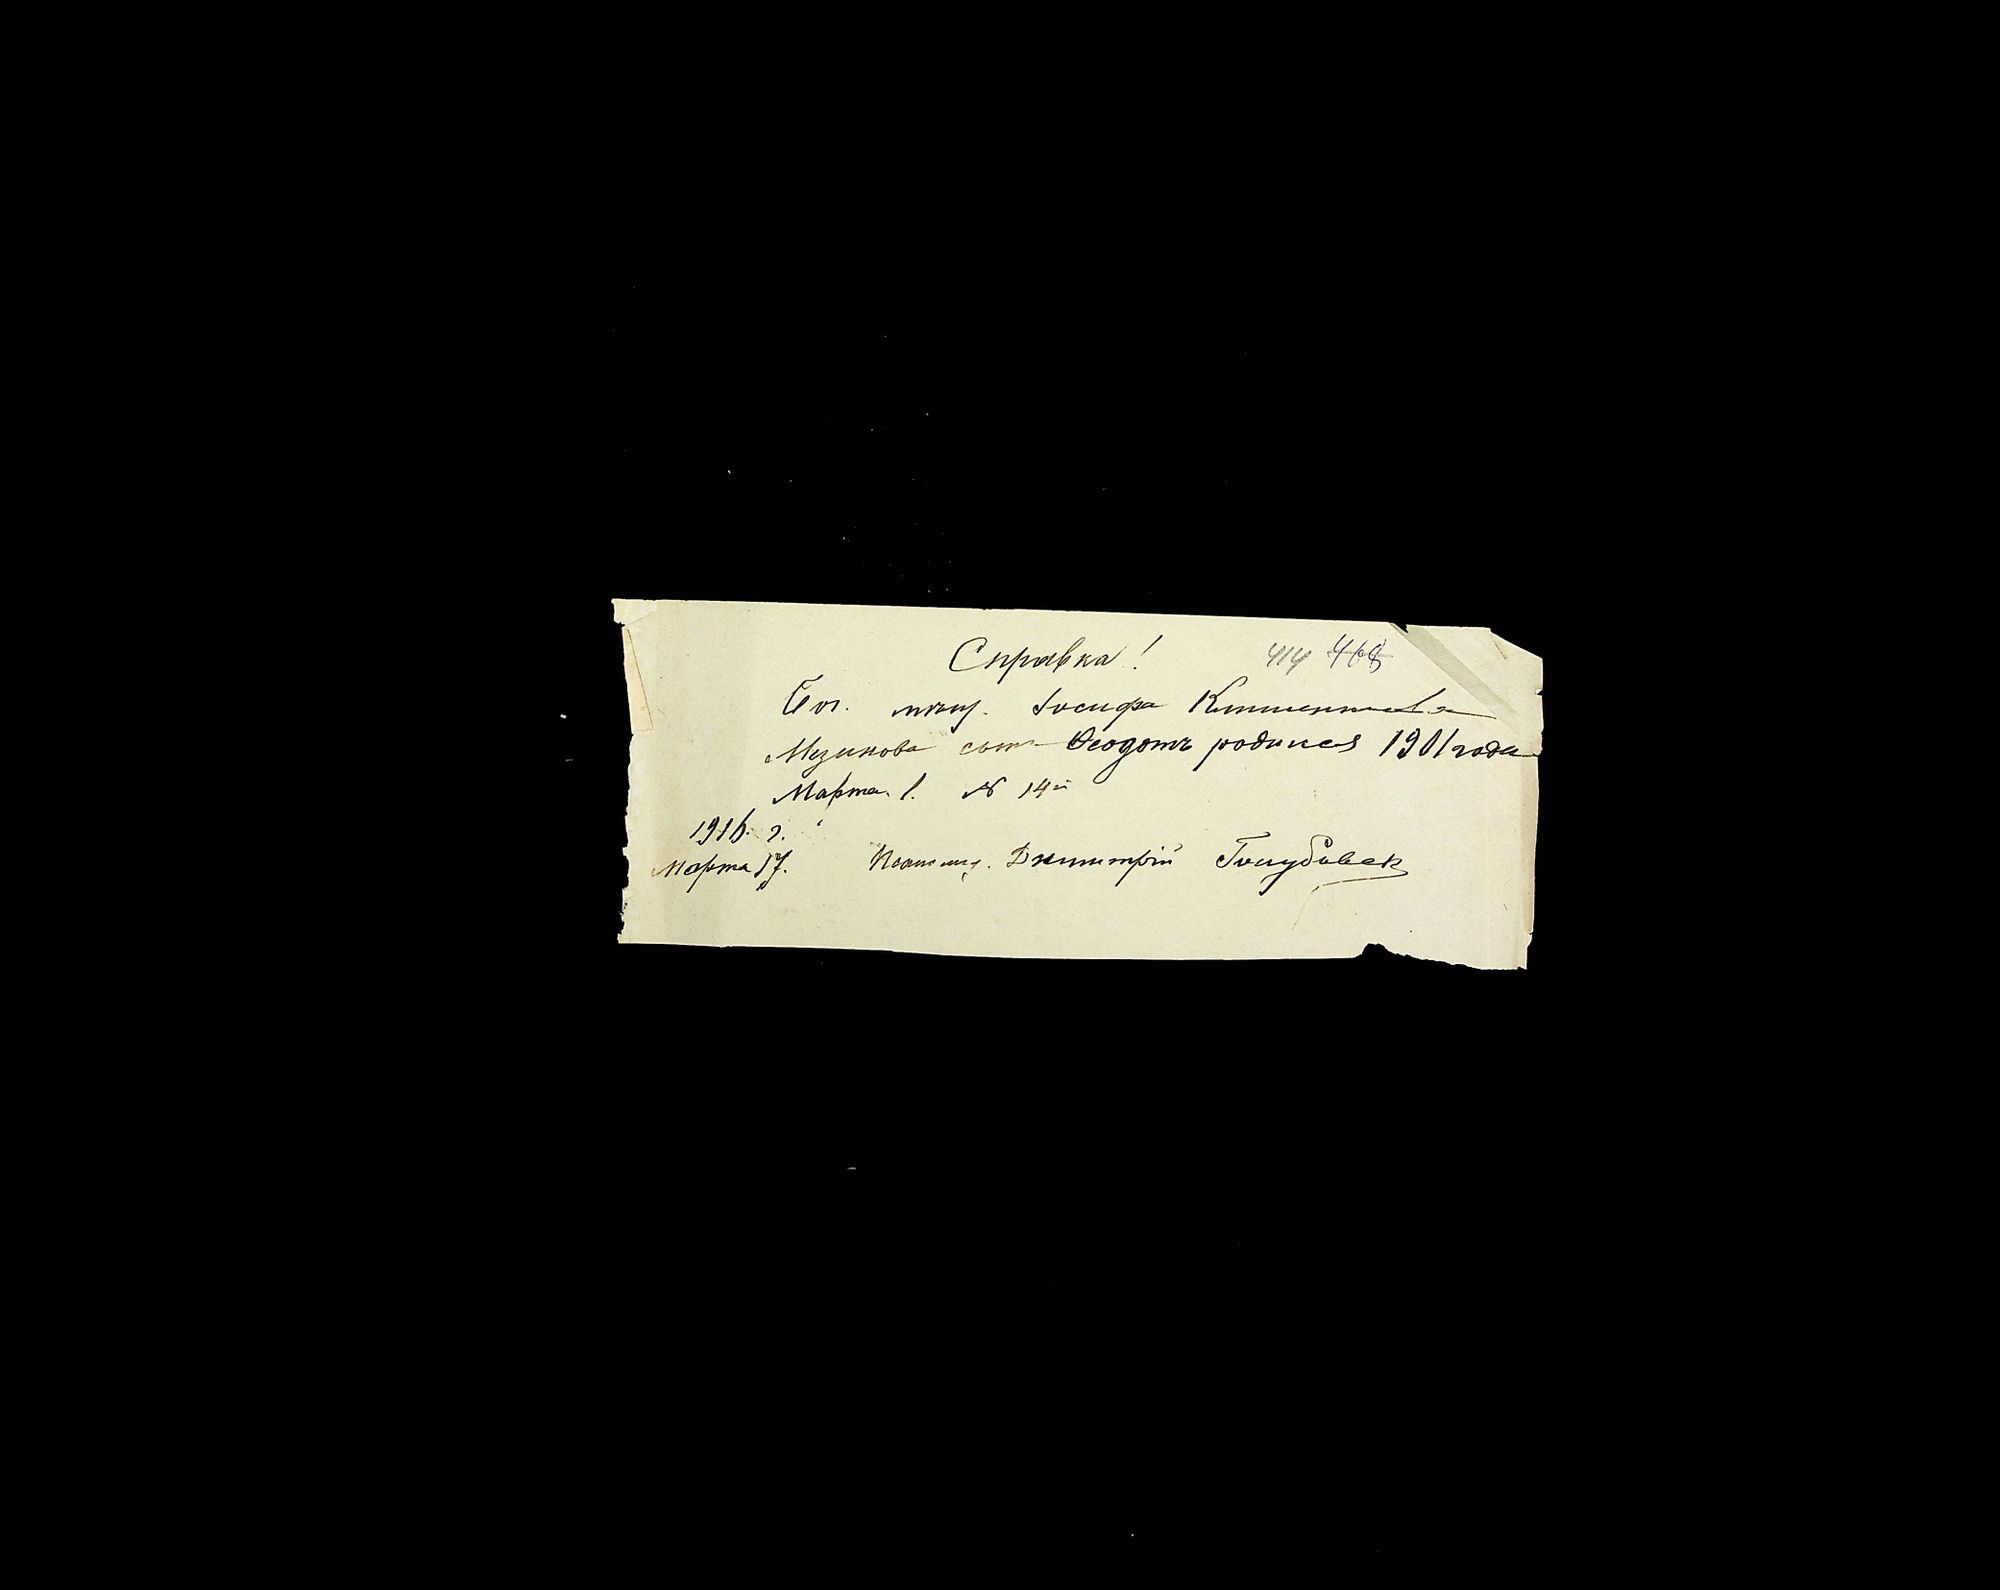 Справка! 414 468
Бог. мѣщ. Іосифа Климентьева
Мезинова сынъ Ѳеодотъ родился 1901 года
Марта 1. № 14й
1916 г.
Марта 17. Псаломщ. Димитрій